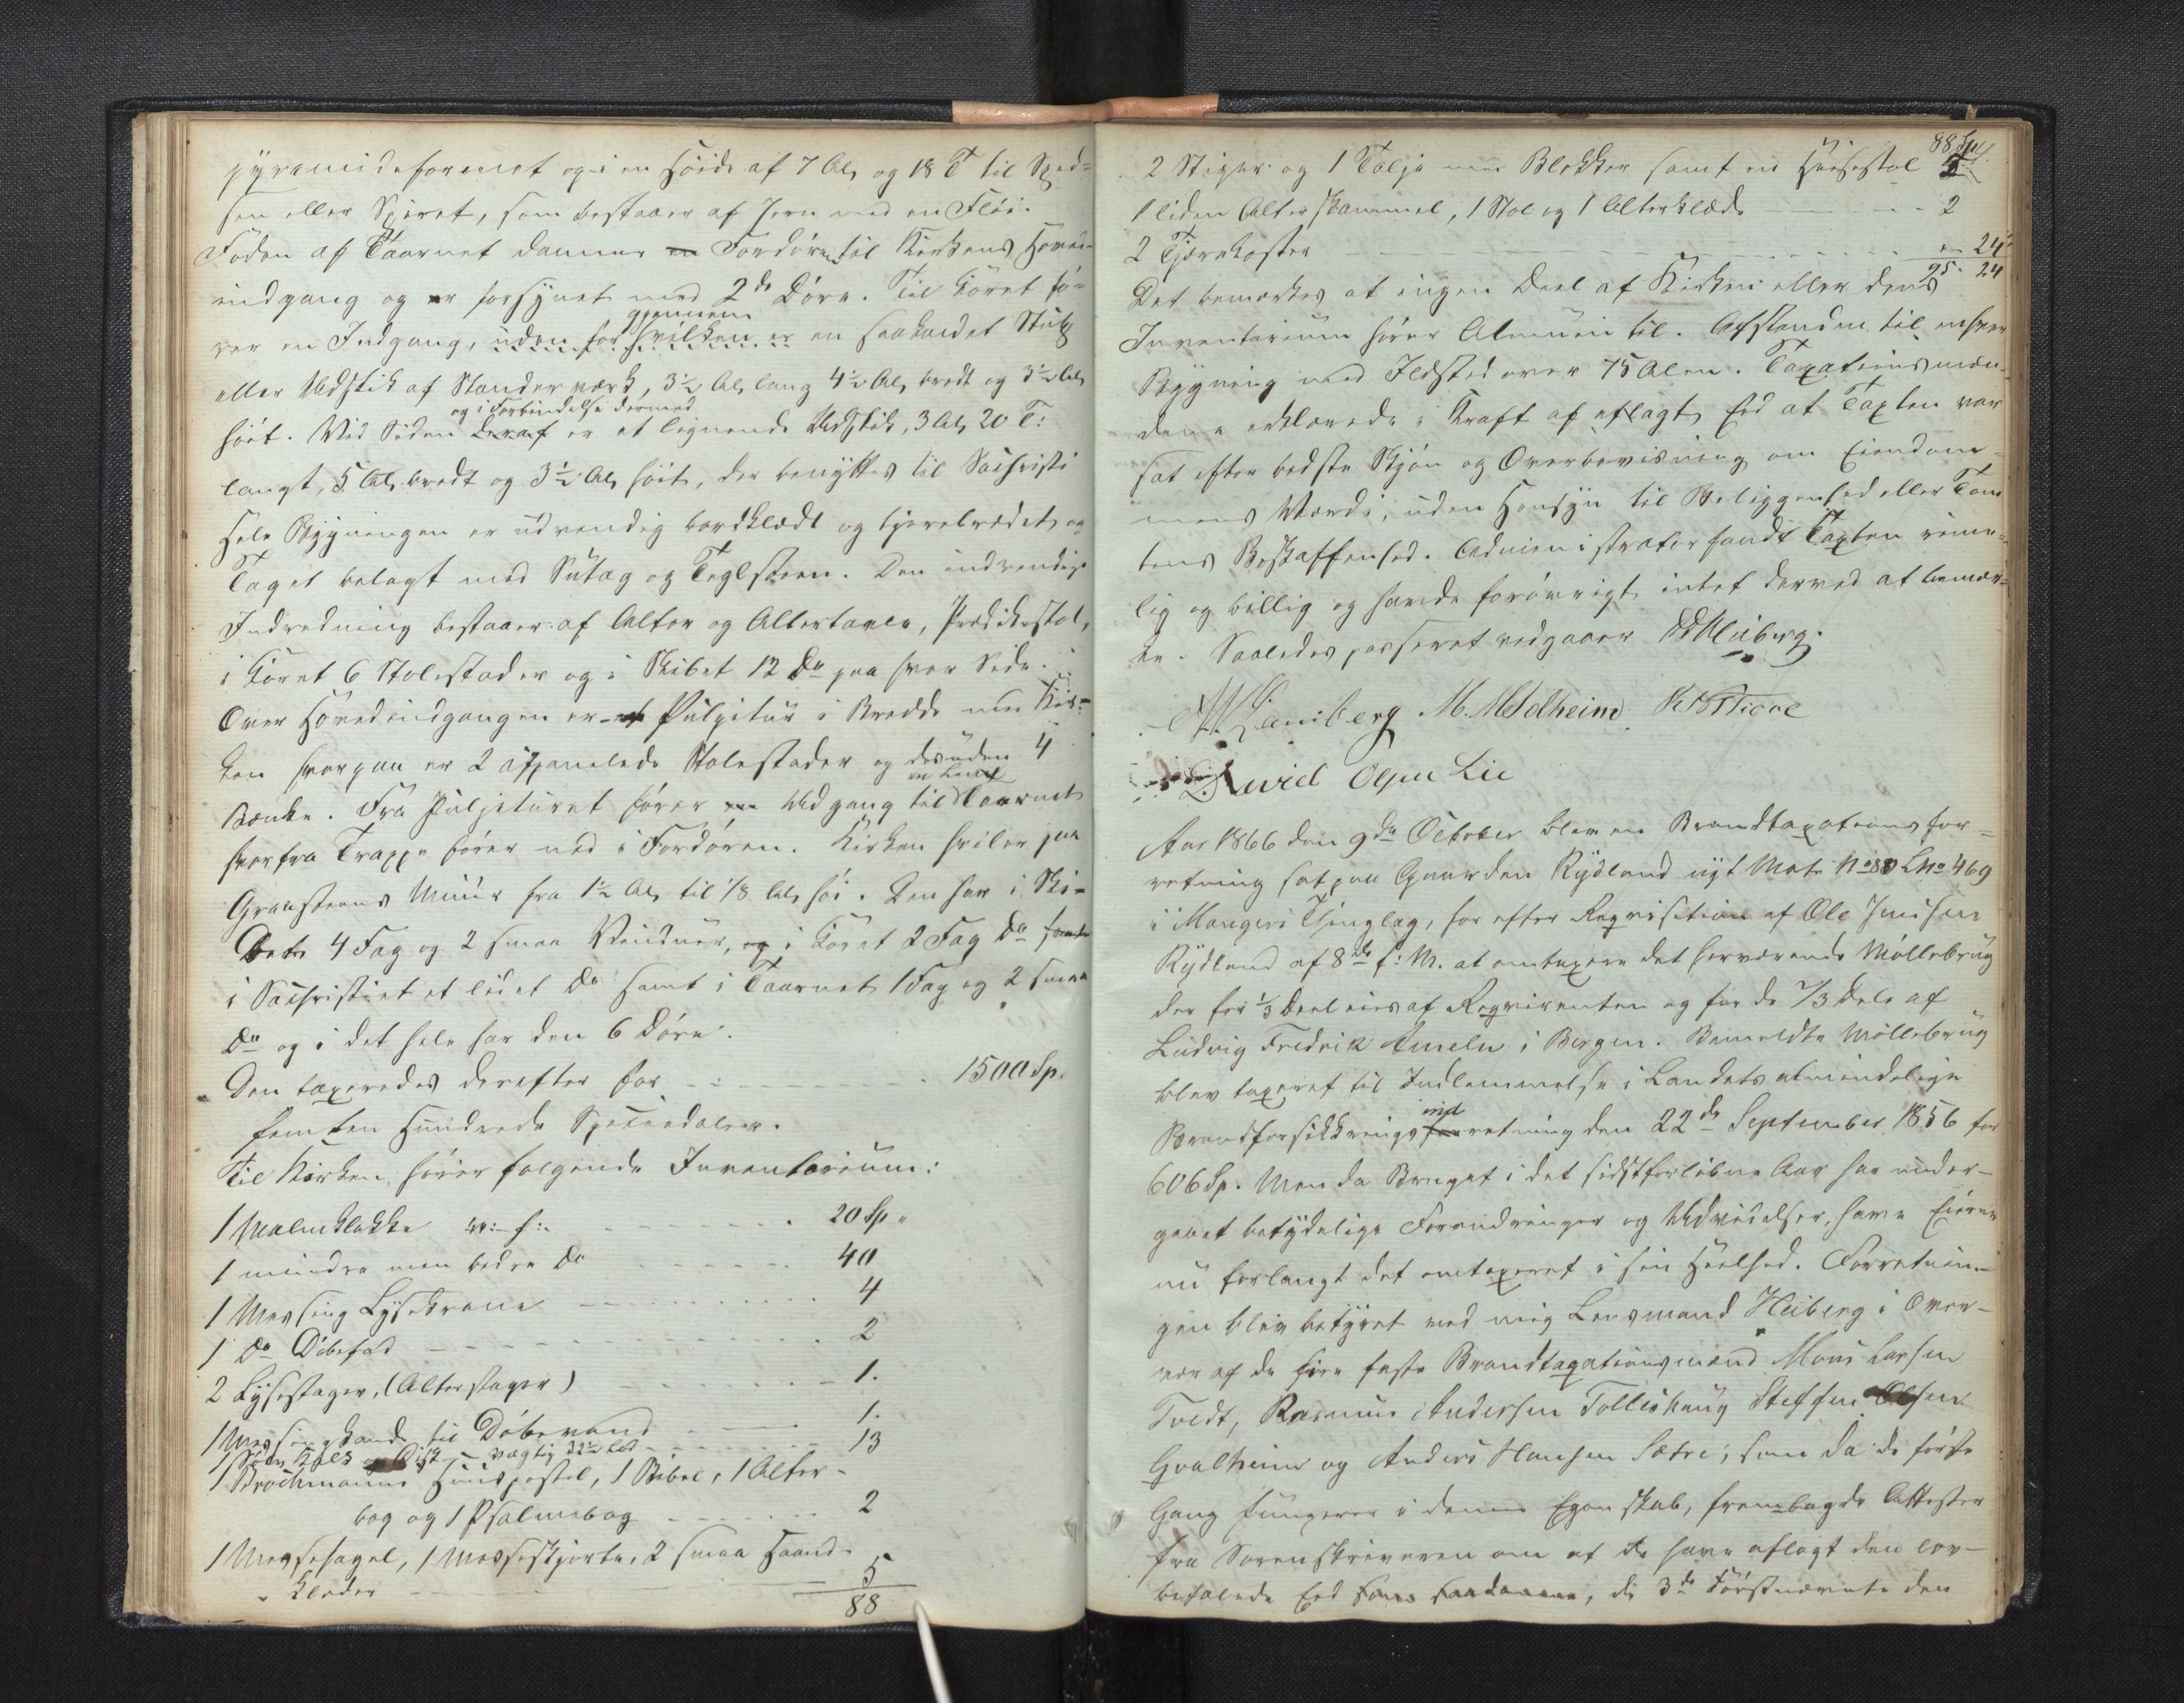 pyramideformet op i en Høide af 7 Al, og 18 T til Spid-
sen eller Spiret, som bestaaer af Jern med en Fløi.
Foden af Taarnet danner en Fordøre til Kirkens Hoved-
indgang og er forsynet med 2de Døre. Til Koret fø-
rer en Indgang, uden for hvilken er en saakaldet Stub
gjennem
eller Udstik af Standerværk, 3½ Al, lang 4½ Al, bredt og 3½ Al,
høit. Ved Siden deraf er et lignende Udstik, 3 Al, 20 T:
og i Forbindelse dermed
langt, 5 Al, bredt og 3½ Al, høit, der benyttes til Sachristi
Hele Bygningen er udvendig bordklædt og tjærebredet og
Taget belagt med Sutag og Teglsteen. Den indvendige
Indredning bestaaer af Alter og Altertavle, Prædikestol,
i Koret 6 Stolestader og i Skibet 12 do paa hver Side.
Over Hovedindgangen er et Pulpitur i Bredde med Kir-
ken hvorpaa er 2 afpanelede Stolestader og desuden 4
Bænke. Fra Pulpituret fører en Udgang til Taarnet
hvorfra Trappe fører ned i Fordøren. Kirken hviler paa
Graasteens Muur fra 1½ Al, til 1/8 Al, høi. Den har i Ski-
bet 4 Fag og 2 smaa Vinduer, og i Koret 2 Fag do
i Sachristiet et lidet do samt i Taarnet 1 Fag og 2 smaa
do og i det hele har den 6 Døre.
Den taxeredes derefter for 1500 Sp.
femten Hundrede Speciedaler.
Til Kirken hører følgende Inventarium:
1 Malmklokke 20 Sp
1 mindre men bedre do 40
1 Messing Lysekrone 4
1 do Døbefad 2
2 Lysestager, (Alterstager) 1.
1 Messingkande til Døbevand 1.
1 Sølv Kalk og Disk vægtig 22½ Lod 13
1 Brochmanns Huuspostil, 1 Bibel, 1 Alter-
bog og 1 Psalmebog 2
1 Messehagel, 1 Messeskjorte, 2 smaa Haand-
klæder 5
88
88 Sp
2 Stiger og 1 Talje med Blokker samt en Heisestol 5
1 liden Alterskammel, 1 Stol og 1 Alterklæde 2
2 Tjærekoster 24
95. 24
Det bemærkes at ingen Deel af Kirken eller dens
Inventarium hører Almuen til. Afstanden til enhver
Bygning med Ildsted over 75 Alen. Taxationsmæn-
dene erklærede i Kraft af aflagt Eed at Taxten var
sat efter bedste Skjøn og Overbeviisning om Eiendom-
mens Værdi, uden Hensyn til Beliggenhed eller Tom
tens Beskaffenhed. Administrator fandt Taxten rime-
lig og billig og havde forøvrigt intet derved at bemær-
ke. Saaledes passeret vedgaaer Heiberg.
Lamberg M. Mjeldheim
David Olsen Lie
Aar 1866 den 9de October blev en Brandtaxationsfor-
retning sat paa Gaarden Rydland nyt Matr No 80 LNo 469
i Mangers Thinglag, for efter Reqvisition af Ole Jensen
Rydland af 8de f: M. at omtaxere det herværende Møllebrug
der for ⅓ Deel eies af Reqvirenten og for de ⅔ Dele af
Ludvig Fredrik Ameln i Bergen. Bemeldte Møllebrug
blev taxeret til Indlemmelse i Landets almindelige
Brandforsikkringsforretning den 22de September 1856 for
ind
606 Sp. Men da Bruget i det sidstforløbne Aar har under-
gaaet betydelige Forandringer og Udvidelser, have Eierne
nu forlangt det omtaxeret i sin Heelhed. Forretnin-
gen blev bestyret ved mig Lensmand Heiberg i Over-
vær af de fire faste Brandtaxationsmænd Mons Larsen
Tvedt, Rasmus Andersen Tolleshaug Steffen Olsen
Qvalheim og Anders Hansen Sætre; som da de første
Gang fungerer i denne Egenskab, fremlagde Attester
fra Sorenskriveren om at de have aflagt den lov-
befalede Eed, de 3de Førstnævnte den